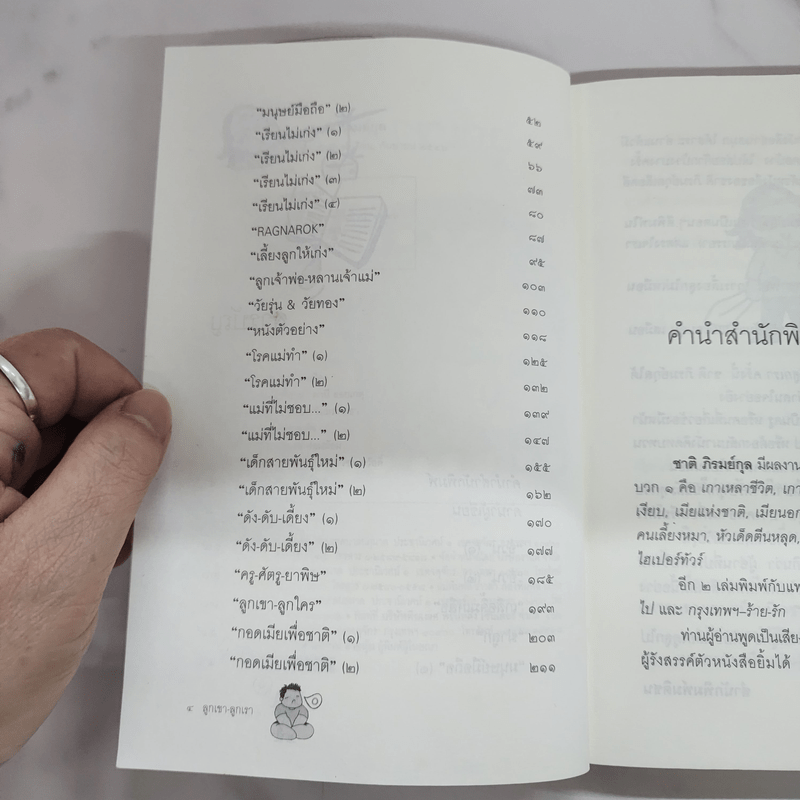 “มนุษย์มือถือ” (๒) ๕๒
“เรียนไม่เก่ง” (๑) ๕๙
“เรียนไม่เก่ง” (๒) ๖๖
“เรียนไม่เก่ง” (๓) ๗๓
“เรียนไม่เก่ง” (๔) ๘๐
“RAGNAROK” ๘๗
“เลี้ยงลูกให้เก่ง” ๙๕
“ลูกเจ้าพ่อ-หลานเจ้าแม่” ๑๐๓
“วัยรุ่น & วัยทอง” ๑๑๐
“หนังตัวอย่าง” ๑๑๘
“โรคแม่ทำ” (๑) ๑๒๕
“โรคแม่ทำ” (๒) ๑๓๒
“แม่ที่ไม่ชอบ...” (๑) ๑๓๙
“แม่ที่ไม่ชอบ...” (๒) ๑๔๗
“เด็กสายพันธุ์ใหม่” (๑) ๑๕๕
“เด็กสายพันธุ์ใหม่” (๒) ๑๖๒
“ดัง-ดับ-เดี้ยง” (๑) ๑๗๐
“ดัง-ดับ-เดี้ยง” (๒) ๑๗๗
“ครู-ศัตรู-ยาพิษ” ๑๘๕
“ลูกเขา-ลูกใคร” ๑๙๓
“กอดเมียเพื่อชาติ” (๑) ๒๐๓
“กอดเมียเพื่อชาติ” (๒) ๒๑๑
๔ ลูกเขา-ลูกเรา
คำนำสำนักพิ
ชาติ ภิรมย์กุล มีผลงาน
บวก ๑ คือ เกาเหลาชีวิต, เกา
เงียบ, เมียแห่งชาติ, เมียนอก
คนเลี้ยงหมา, หัวเด็ดตีนหลุด,
ไฮเปอร์ทัวร์
อีก ๒ เล่มพิมพ์กับแพ
ไป และ กรุงเทพฯ-ร้าย-รัก
ท่านผู้อ่านพูดเป็นเสีย
ผู้รังสรรค์ตัวหนังสือยิ้มได้